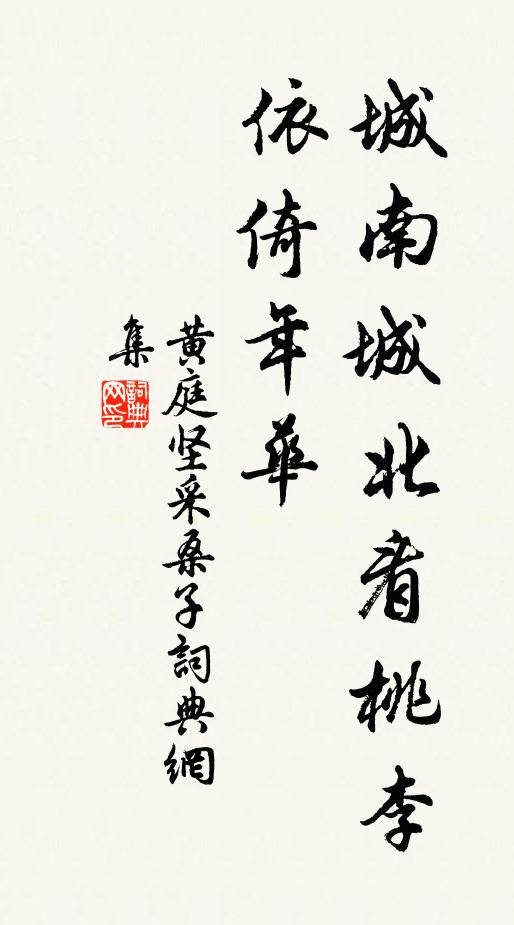 城南城北看桃李
依倚年華
黄庭坚采桑子詞典網
集
詞典
网印